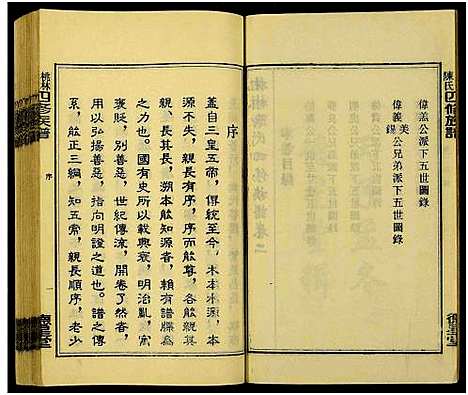 陳氏四修族譜
偉羔公派下五世圖錄
偉義美錫公兄弟派下五世圖錄
桃林四修族譜
序
序
蓋自三皇五帝，傳統至今，木本水源，本
源不失，親長有序，序而能尊，各能親其
親、長其長，溯本能知源者，賴有譜牒為
之力也。國有史所以載興衰，明治亂，寓
褒貶，別善惡，世紀傳流，開卷了然。家
用以弘揚善惡，指向明證之道也。譜之傳
序，能正三綱，知五常，親長順序，老少